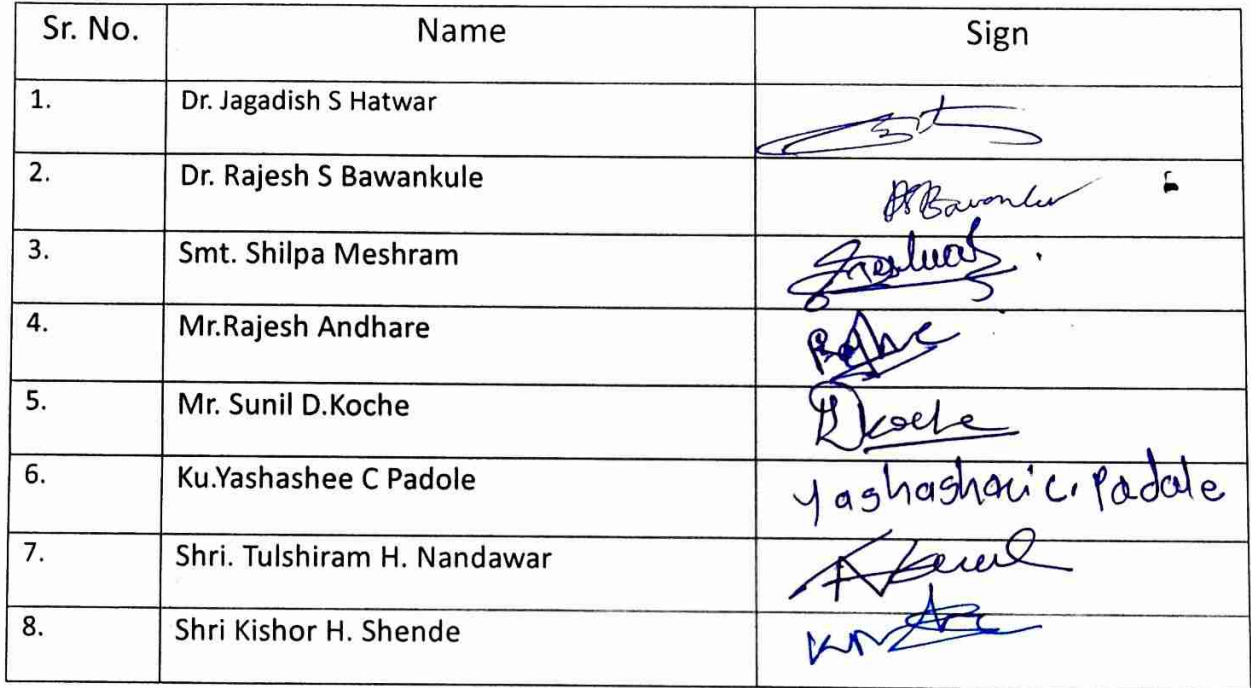 Sr. No. Name Sign
1. Dr. Jagadish S Hatwar
2. Dr. Rajesh S Bawankule
3. Smt. Shilpa Meshram
4. Mr.Rajesh Andhare
5. Mr. Sunil D.Koche Koche
6. Ku.Yashashee C Padole Yashashari C. Padole
7. Shri. Tulshiram H. Nandawar
8. Shri Kishor H. Shende